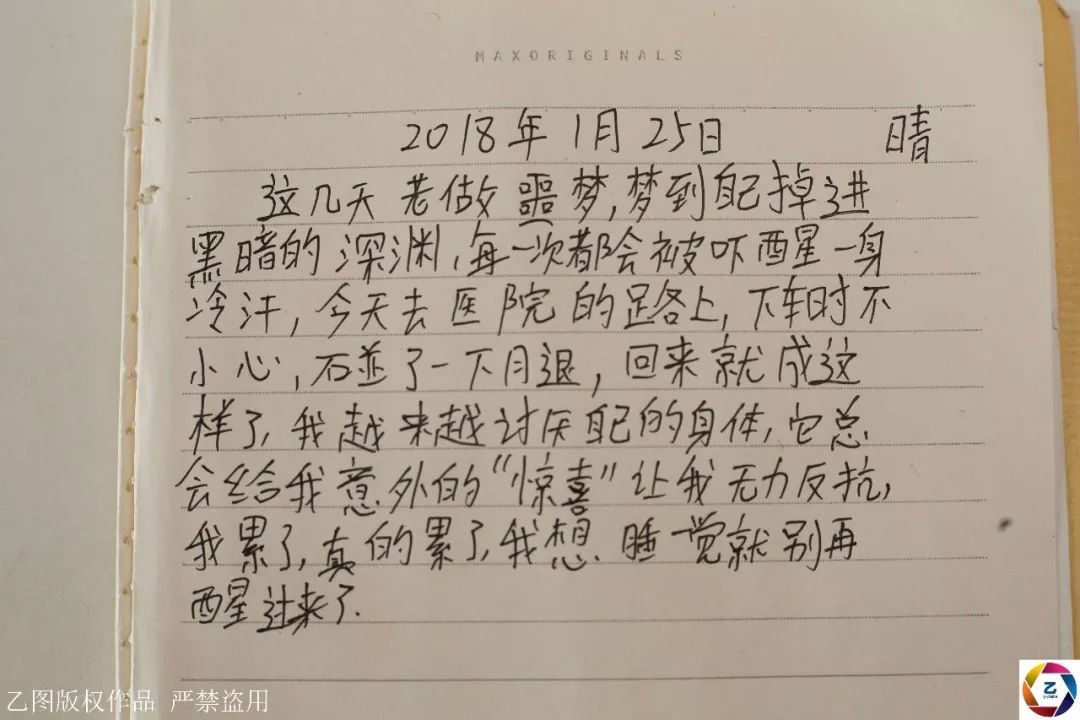 MAXORIGINALS
2018年1月25日 晴
这几天老做噩梦,梦到自己掉进
黑暗的深渊,每一次都会被吓醒一身
冷汗,今天去医院的路上,下车时不
小心,碰了一下腿,回来就成这
样了,我越来越讨厌自己的身体,它总
会给我意外的“惊喜”让我无力反抗,
我累了,真的累了,我想睡觉就别再
醒过来了.
乙图版权作品 严禁盗用
乙